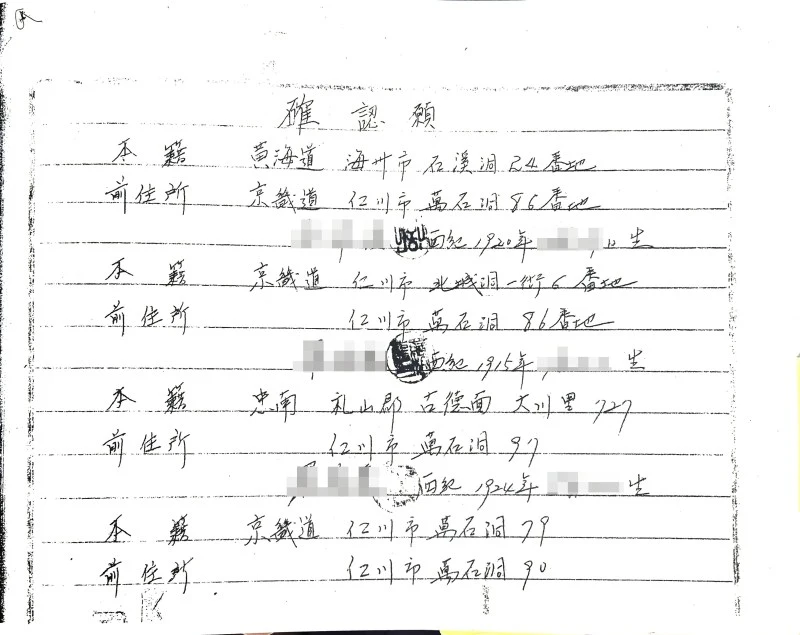 確認願
本籍 黃海道 海州市 石溪洞 24番地
前住所 京畿道 仁川市 萬石洞 86番地
西紀 1920年 生
本籍 京畿道 仁川市 北城洞一街6番地
前住所 仁川市 萬石洞 86番地
西紀 1915年 生
本籍 忠南 礼山郡 古德面 大川里 727
前住所 仁川市 萬石洞 97
西紀 1924年 生
本籍 京畿道 仁川市 萬石洞 79
前住所 仁川市 萬石洞 90